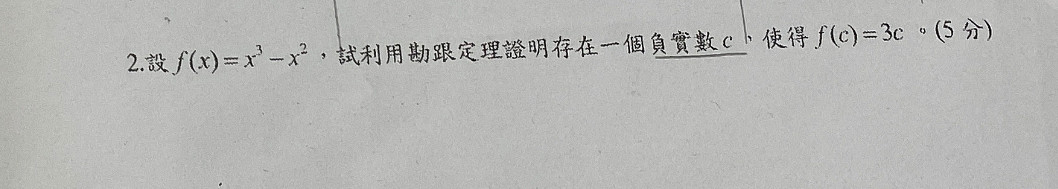 2.設 f(x)=x³−x²，試利用勘跟定理證明存在一個負實數 c，使得 f(c)=3c。(5 分)